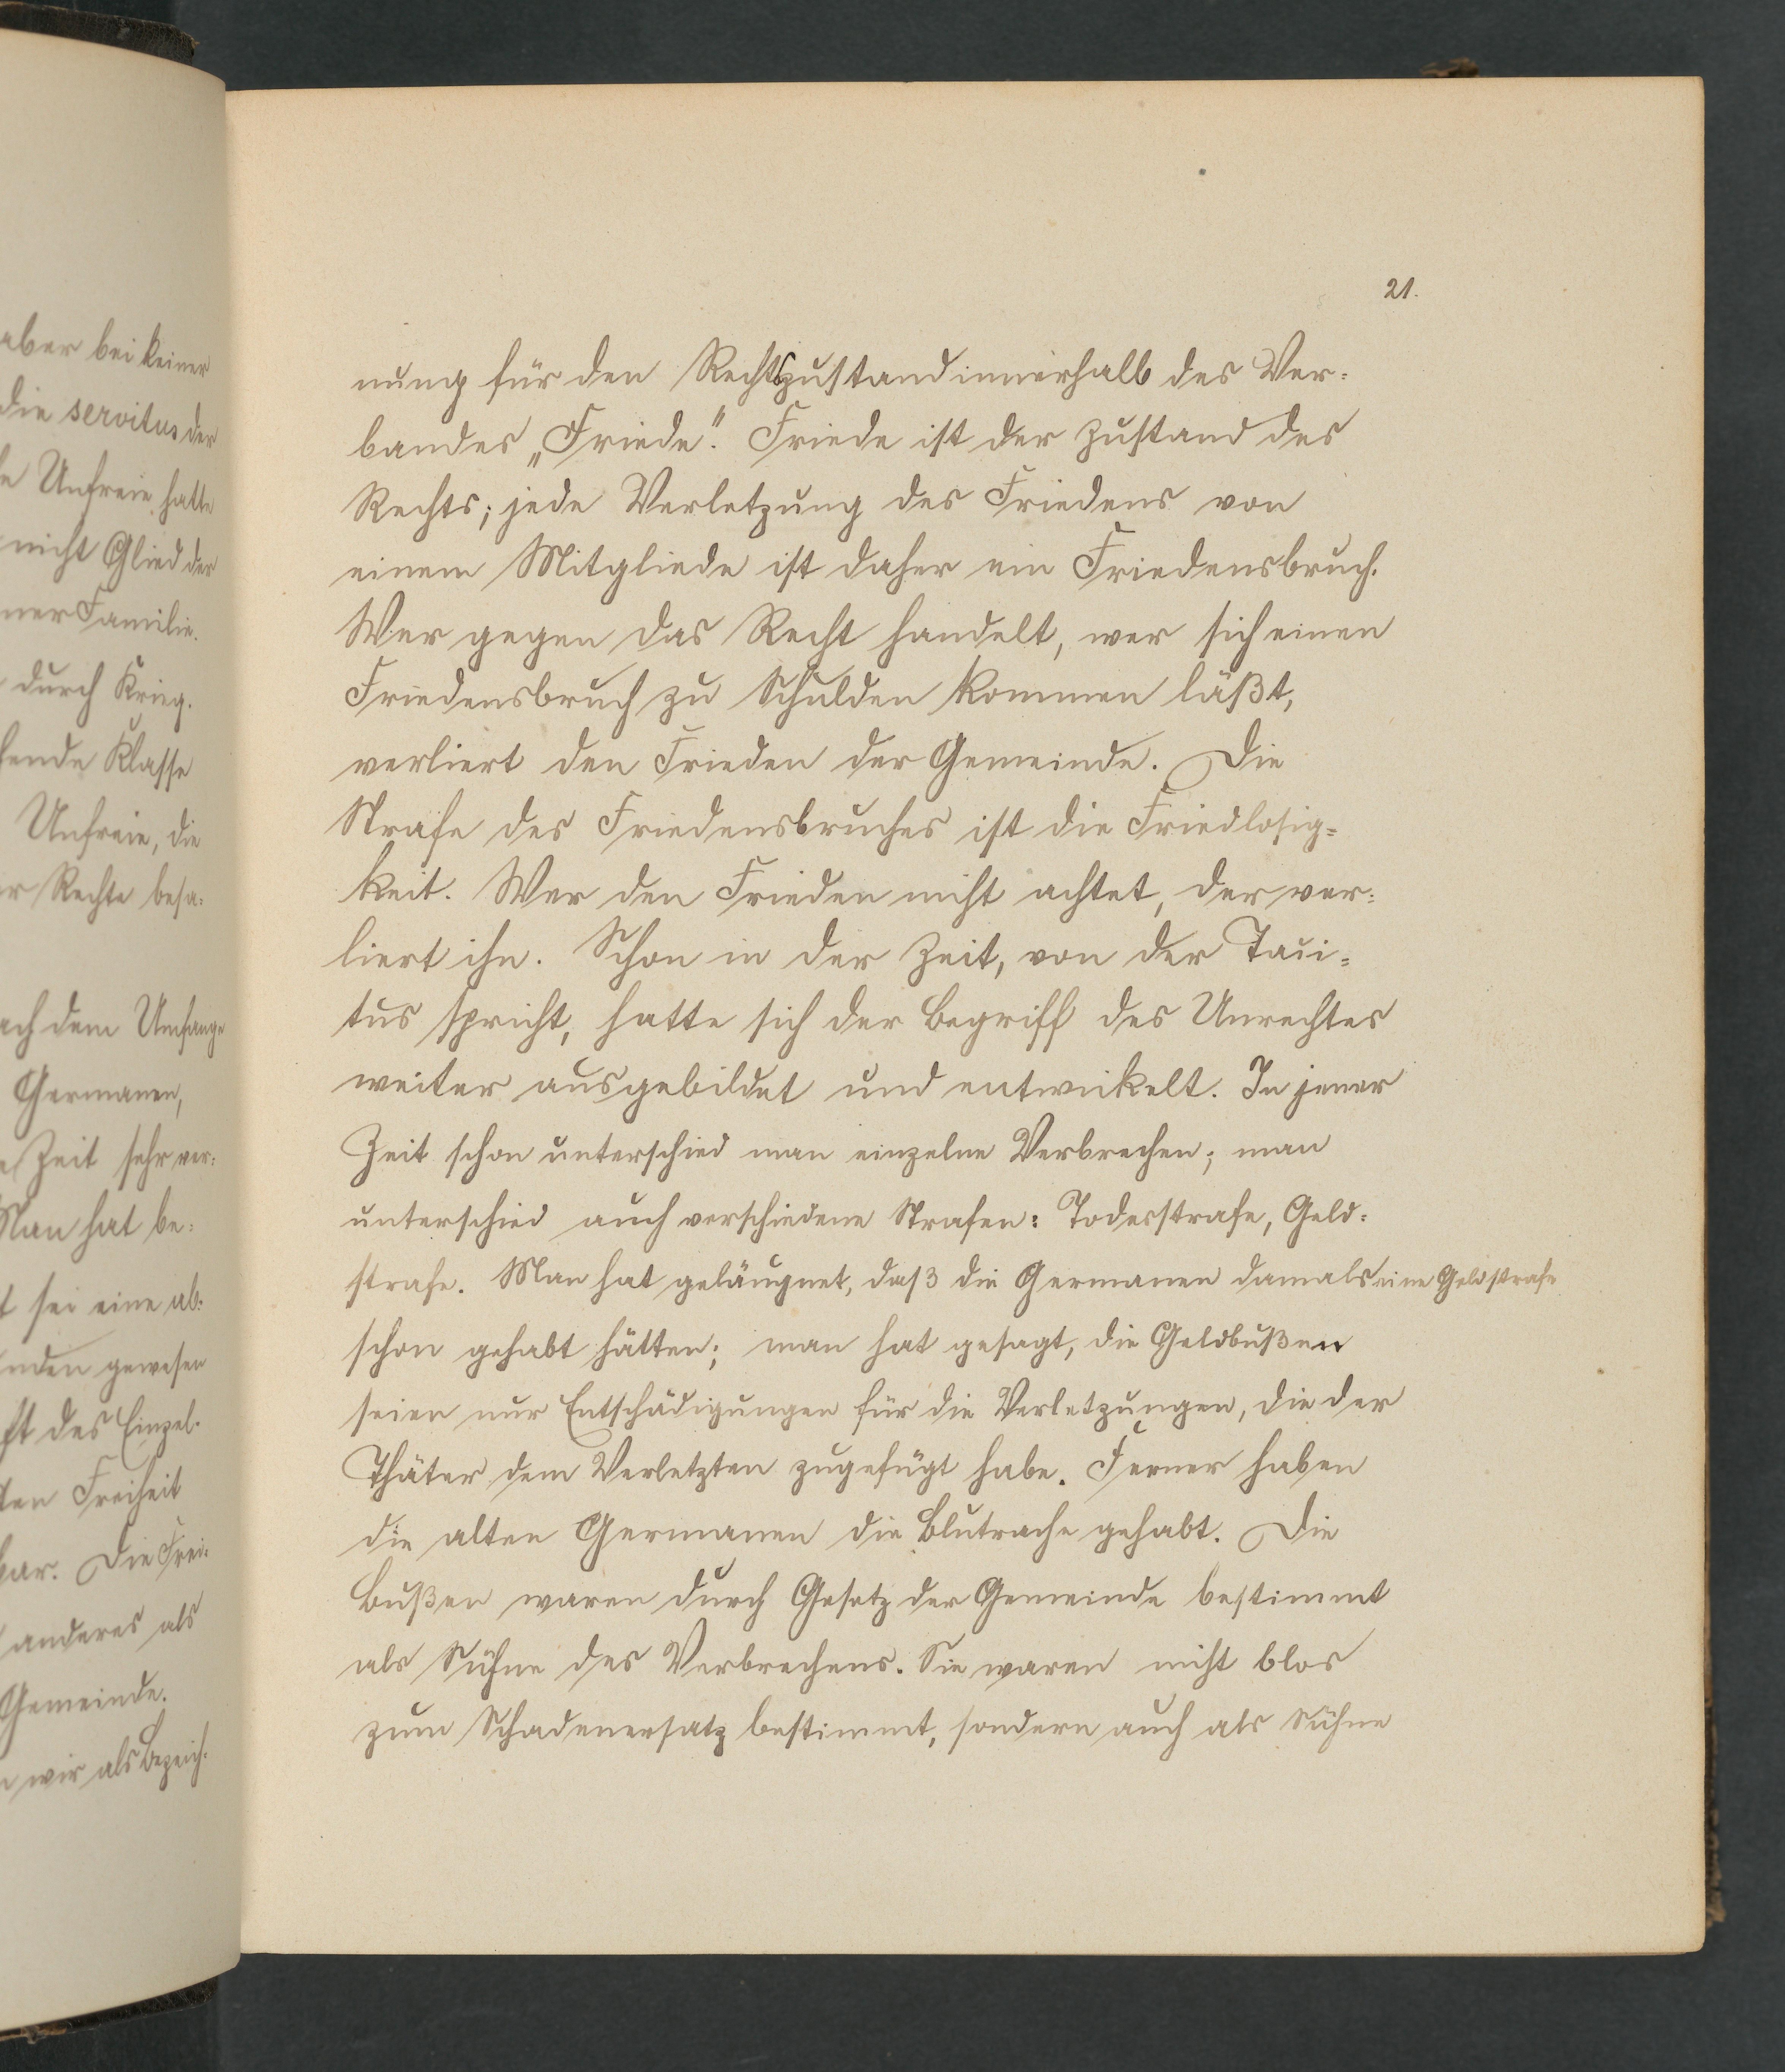 aber bei keiner
die servitus der
Unfreie hatte
nicht Glied der
ner Familie.
durch Krieg.
hende Klasse
Unfreie, die
er Rechte besa-
ach dem Umfange
Germanen,
Zeit sehr ver-
Man hat be-
sei eine ab-
unden gewesen
ft des Einzel-
ten Freiheit
bar. Die Frei-
anderes als
Gemeinde.
wir als Bezeich-
21.
nung für den Rechtszustand innerhalb des Ver-
bandes „Friede“. Friede ist der Zustand des
Rechts; jede Verletzung des Friedens von
einem Mitgliede ist daher ein Friedensbruch.
Wer gegen das Recht handelt, wer sich einen
Friedensbruch zu Schulden kommen läßt,
verliert den Frieden der Gemeinde. Die
Strafe des Friedensbruches ist die Friedlosig-
keit. Wer den Frieden nicht achtet, der ver-
liert ihn. Schon in der Zeit, von der Taci-
tus spricht, hatte sich der Begriff des Unrechtes
weiter ausgebildet und entwickelt. In jener
Zeit schon unterschied man einzelne Verbrechen; man
unterschied auch verschiedene Strafen: Todesstrafe, Geld-
strafe. Man hat geläugnet, daß die Germanen damals eine Geldstrafe
schon gehabt hätten; man hat gesagt, die Geldbußen
seien nur Entschädigungen für die Verletzungen, die der
Thäter dem Verletzten zugefügt habe. Ferner haben
die alten Germanen die Blutrache gehabt. Die
Bußen waren durch Gesetz der Gemeinde bestimmt
als Sühne des Verbrechens. Sie waren nicht blos
zum Schadenersatz bestimmt, sondern auch als Sühne